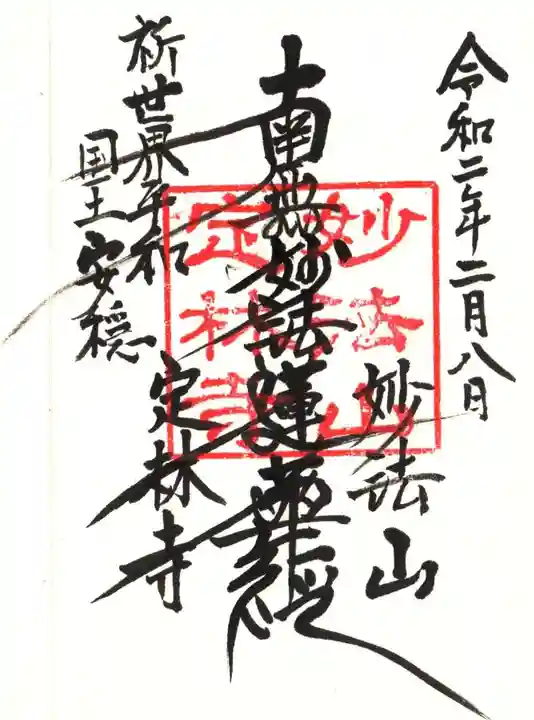 令和二年二月八日
妙法山
南無妙法蓮華経
祈世界平和
国土安穏
定林寺
妙法山
定林寺